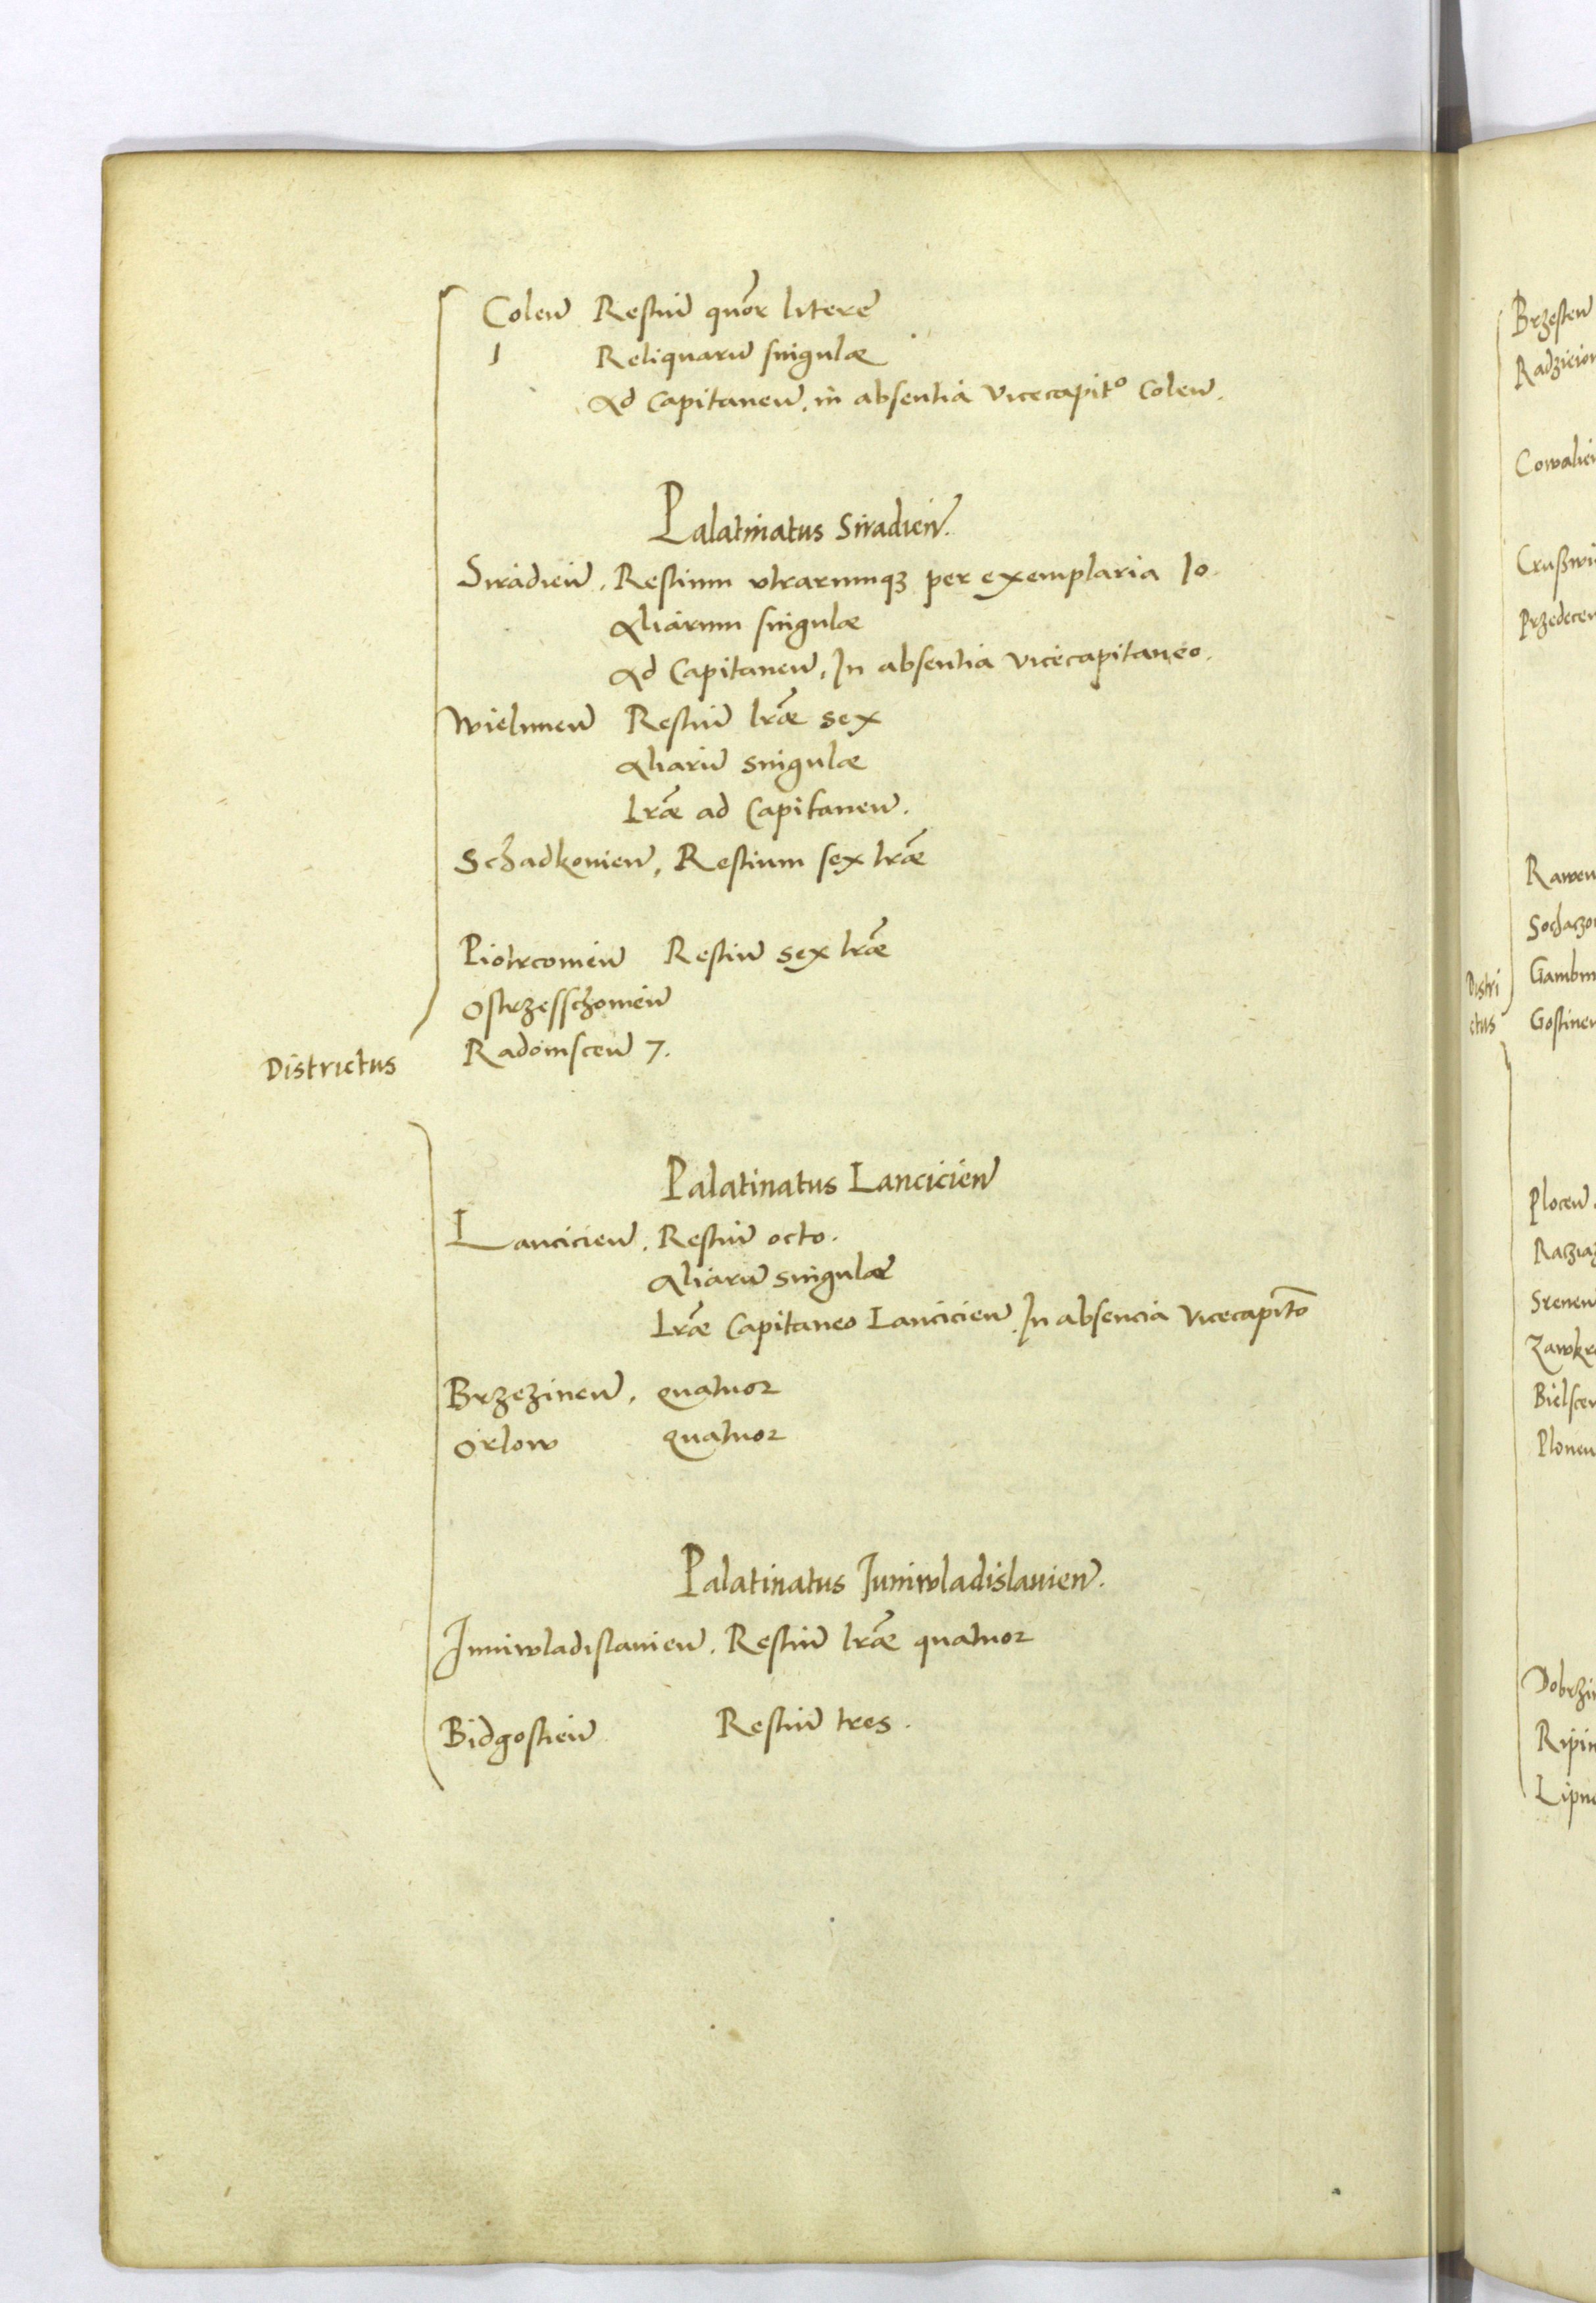 Colen̄ Restiū quōr litere
1 Reliquarū singulæ
Ad Capitaneū, in absentia vicecapitᵒ Colen̄.
Palatinatus Siradien̄.
Siradien̄. Restium utrarumqꝫ per exemplaria 10.
Aliarum singulæ
Ad Capitaneū, In absentia vicecapitaneo.
Wielunen̄ Restiū lr̄æ sex
Aliarū singulæ
Lr̄æ ad Capitaneū.
Schadkovien̄, Restium sex lr̄æ
Piotrcovien̄ Restiū sex lr̄æ
Ostrzesschovien̄
Districtus
Radomscen̄ 7.
Palatinatus Lancicien̄
Lancicien̄. Restiū octo.
Aliarū singulæ
Lr̄æ Capitaneo Lancicien̄. In absencia vicecapito̅
Brzezinen̄. quatuor
Orlow quatuor
Palatinatus Juniwladislavien̄.
Juniwladislavien̄. Restiū lr̄æ quatuor
Bidgostien̄ Restiū tres.
Brzesten̄
Cowalie
Przedecen
Rawen
Gambin
Distri
ctus
Gostinen
Plocen̄
Srenen
Zawkr
Bielscen
Plonen
Dobrzi
Ripin
Lipn